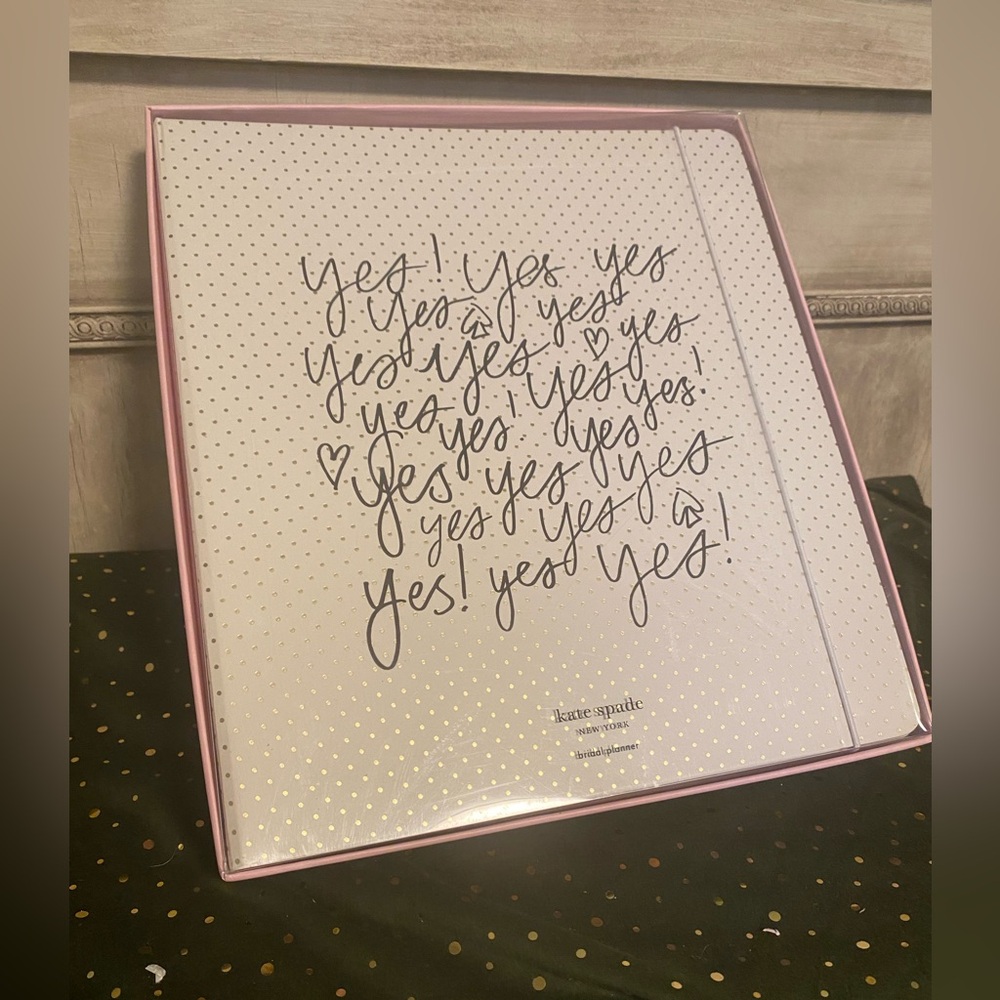 yes! yes yes
yes yes
yes yes yes
yes yes! yes yes!
yes yes yes yes
yes yes
yes! yes yes!
kate spade
NEW YORK
bridal planner